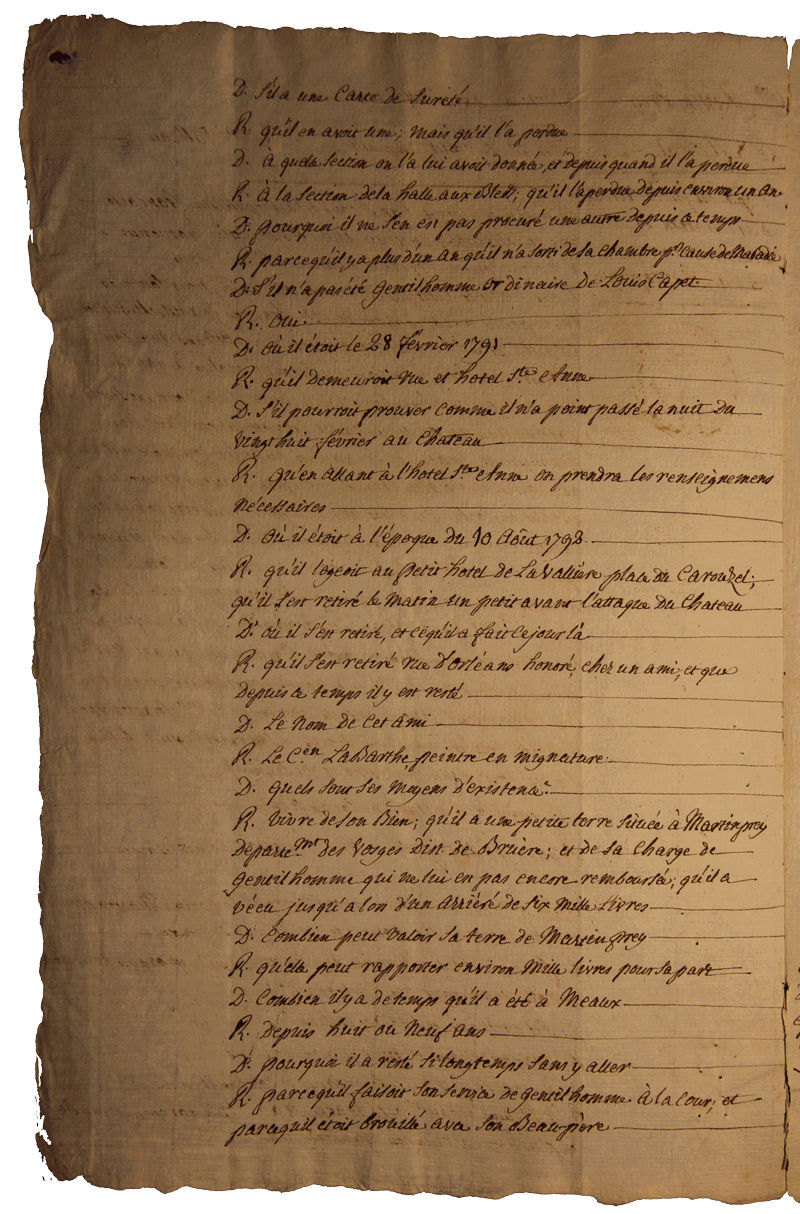 D. S'il a une Carte de Sureté
R. qu'il en avoit une; mais qu'il l'a perdue
D. à quele Section on l'a lui avoit donnée, et depuis quand il l'a perdue
R. à la Section de la halle aux Bled; qu'il l'a perdue depuis environ un an
D. pourquoi il ne s'en est pas procuré une autre depuis ce temps
R. parcequ'il y a plus d'un an qu'il n'a sorti de sa chambre pr. Cause de Maladie
D. S'il n'a pas été Gentilhomme ordinaire de Louis Capet
R. oui
D. où il étoit le 28 février 1791
R. qu'il demeuroit rue et hotel Ste Anne
D. S'il pourroit prouver comme il n'a point passé la nuit du
vingt huit février au Chateau
R. qu'en allant à l'hotel Ste Anne on prendra les renseignemens
nécessaires
D. où il étoit à l'époque du 10 Août 1792
R. qu'il logeoit au petit hotel de La Valliere place du Carouzel;
qu'il s'est retiré le Matin un petit avant l'attaque du Chateau
D. où il s'est retiré, et ce qu'il a fait ce jour là
R. qu'il s'est retiré rue d'orléans honoré, chez un ami; et que
depuis ce temps il y est resté
D. Le nom de Cet ami
R. Le Cen LaBarthe, peintre en mignature
D. quels sont ses moyens d'existence
R. vivre de son Bien; qu'il a une petite terre située à Martinprey
départemt des Vosges Dist. de Bruïere; et de sa Charge de
gentilhomme qui ne lui en pas encore remboursée; qu'il a
vécu jusqu'alors d'un arriéré de six mille Livres
D. Combien peut valoir sa terre de Martinprey
R. qu'elle peut rapporter environ Mille livres pour sa part
D. Combien il y a de temps qu'il a été à Meaux
R. depuis huit ou neuf ans
D. pourquoi il a resté si longtemps sans y aller
R. parcequ'il faisoit son service de gentilhomme à la Cour; et
parcequ'il étoit brouillé avec son Beau-père